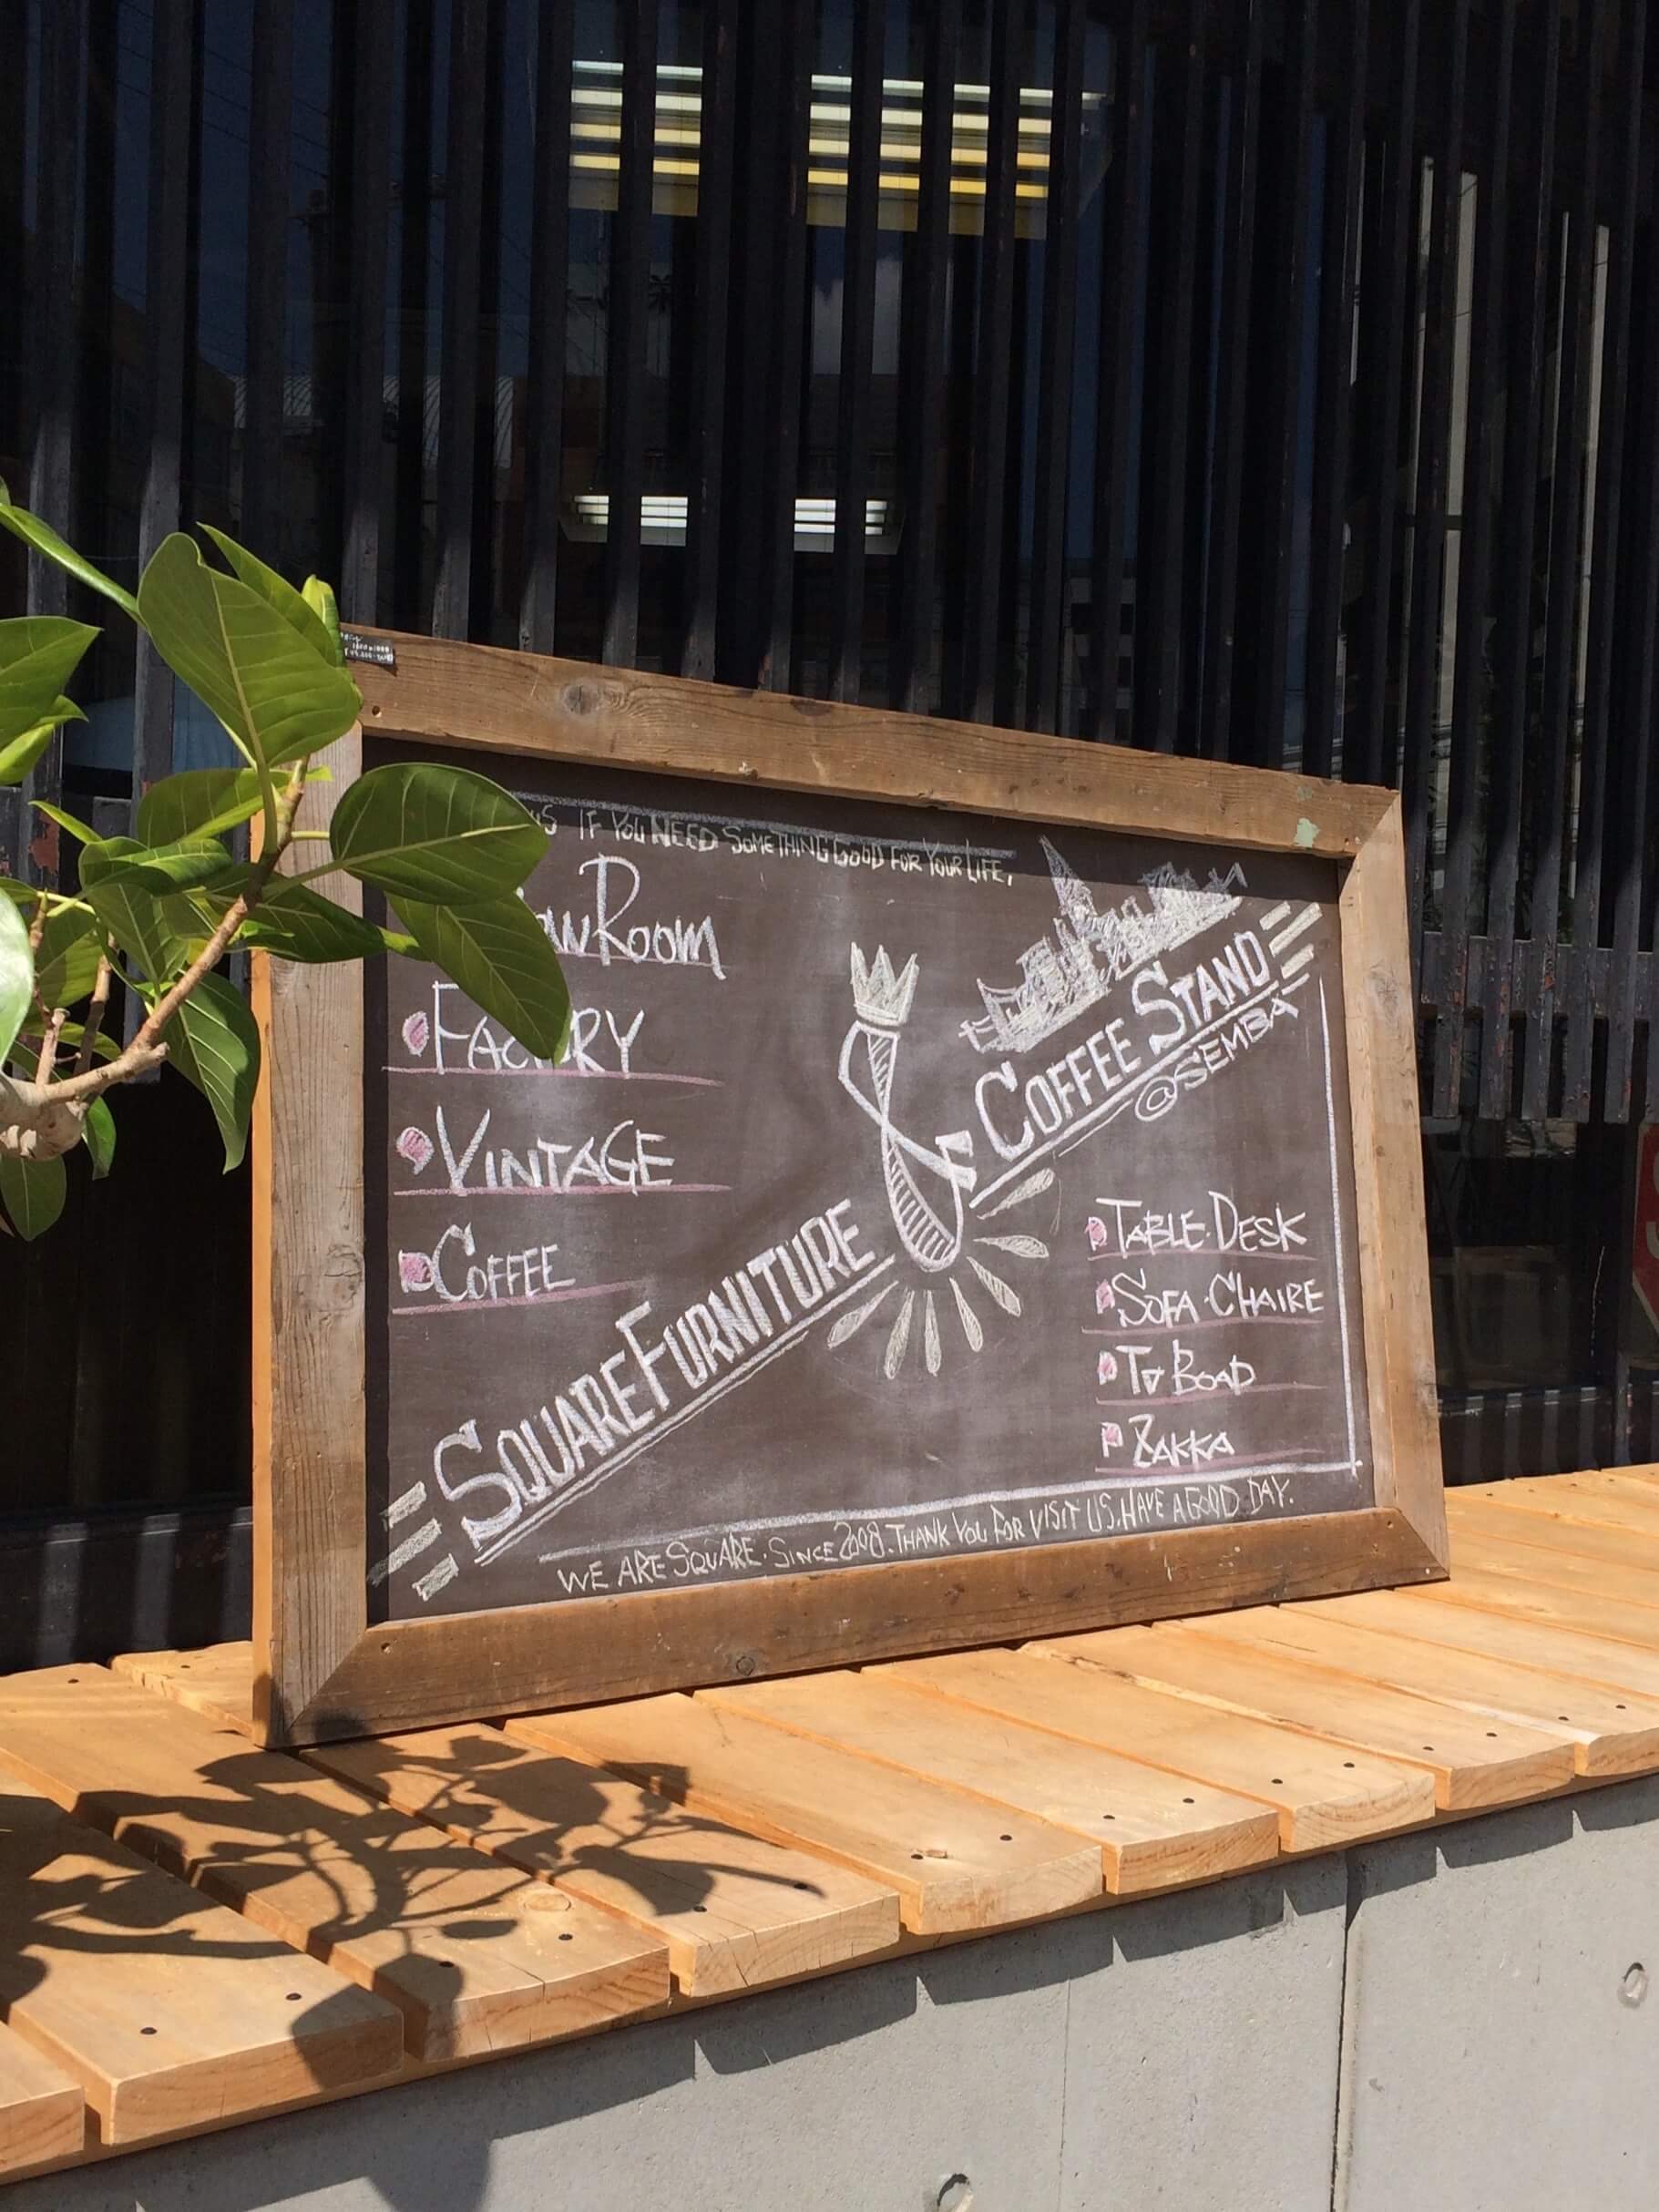 IF YOU NEED SOMETHING GOOD FOR YOUR LIFE,
ROOM
VINTAGE
COFFEE
SQUARE FURNITURE
COFFEE STAND
@SEMBA
TABLE·DESK
SOFA·CHAIRE
TV BOAD
ZAKKA
WE ARE SQUARE. SINCE 2008. THANK YOU FOR VISIT US. HAVE A GOOD DAY.